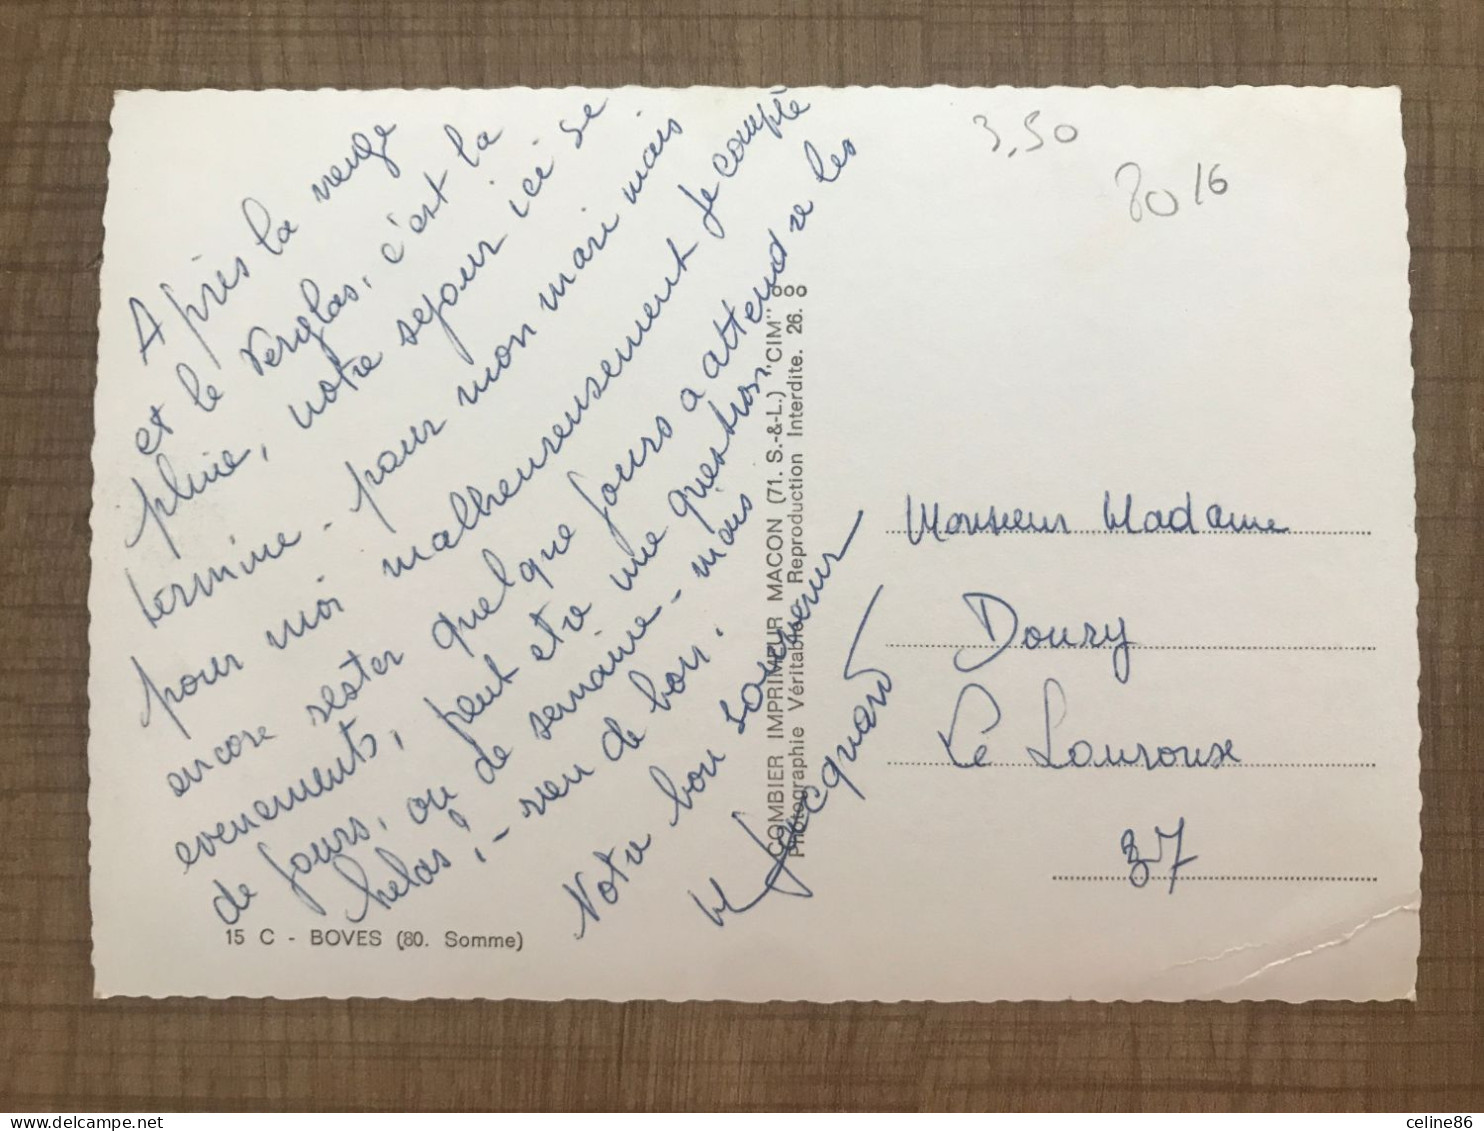 Après la neige
et le verglas, c'est la
pluie, notre sejour ici se
termine - pour mon mari mais
pour moi malheureusement je compte
encore rester quelque jours a attendre les
evenements, peut etre une question
de jours, ou de semaine - mais
helas, - rien de bon.
Notre bon souvenir
M Jacquard
15 C - BOVES (80. Somme)
COMBIER IMPRIMEUR MACON (71. S.-&-L.) "CIM"
Photographie Véritable Reproduction Interdite. 26.
3,50
80 16
Monsieur Madame
Doury
Le Louroux
37
celine86